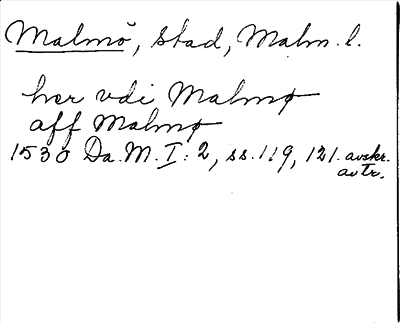 Malmö, stad, Malm. l.
her vdi Malmø
aff Malmø
1530 Da. M. I: 2, ss. 119, 121. avskr.
av tr.